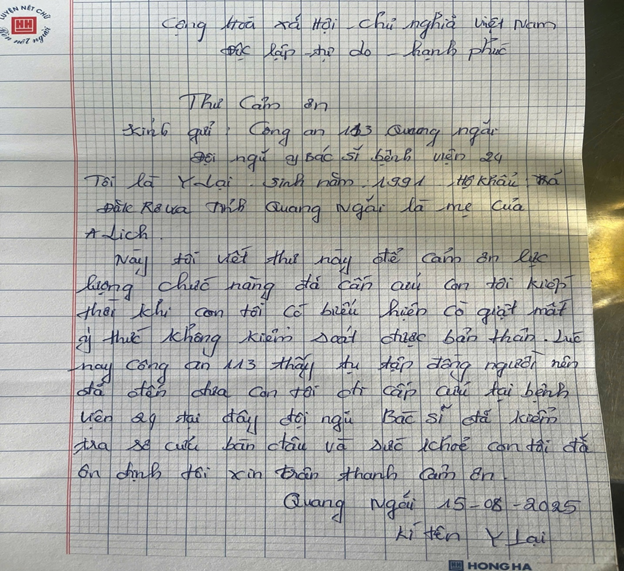 LUYỆN NÉT CHỮ
HH
Rèn nết người
Cộng Hoà xã Hội chủ nghĩa việt Nam
Độc lập tự do - hạnh phúc
Thư Cảm ơn
Kính gửi: Công an 113 Quảng ngãi
Đội ngũ y Bác sĩ bệnh viện 24
Tôi là Y Lại. sinh năm: 1991 Hộ khẩu: xã
Đăk Rơ wa Tỉnh Quang Ngãi là mẹ của
A Lich.
Nay tôi viết thư này để cảm ơn lực
lượng chức năng đã cấp cứu con tôi kiệp
thời khi con tôi có biểu hiện co giật mất
ý thức không kiểm soát được bản thân. Lúc
này công an 113 thấy tụ tập đông người nên
đã đến đưa con tôi đi cấp cứu tại bệnh
viện 24 tại đây đội ngũ Bác sĩ đã kiểm
tra sơ cứu ban đầu và sức khoẻ con tôi đã
ổn định tôi xin trân thanh cảm ơn.
Quang Ngãi 15-08-2025
Kí tên Y Lại
HONG HA